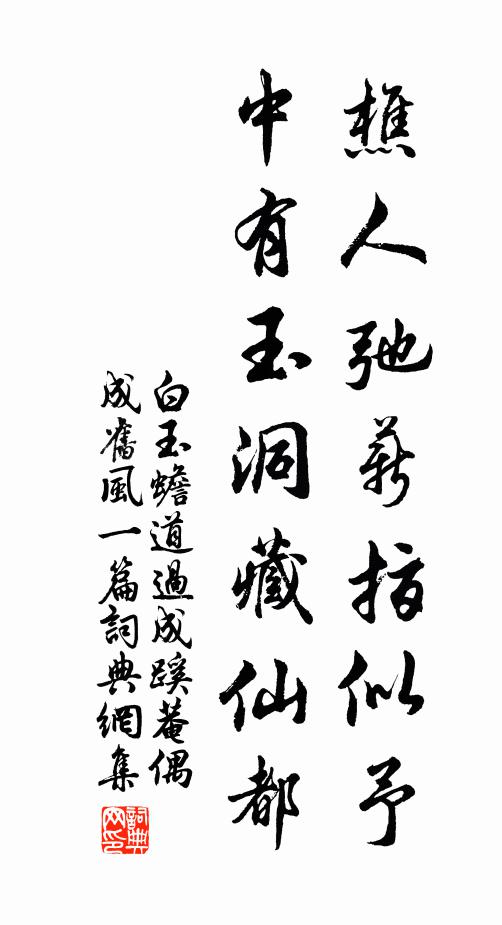 樵人弛薪指似予
中有玉洞藏仙都
白玉蟾道過成蹊菴偶
成舊風一篇詞典網集
詞典
網印